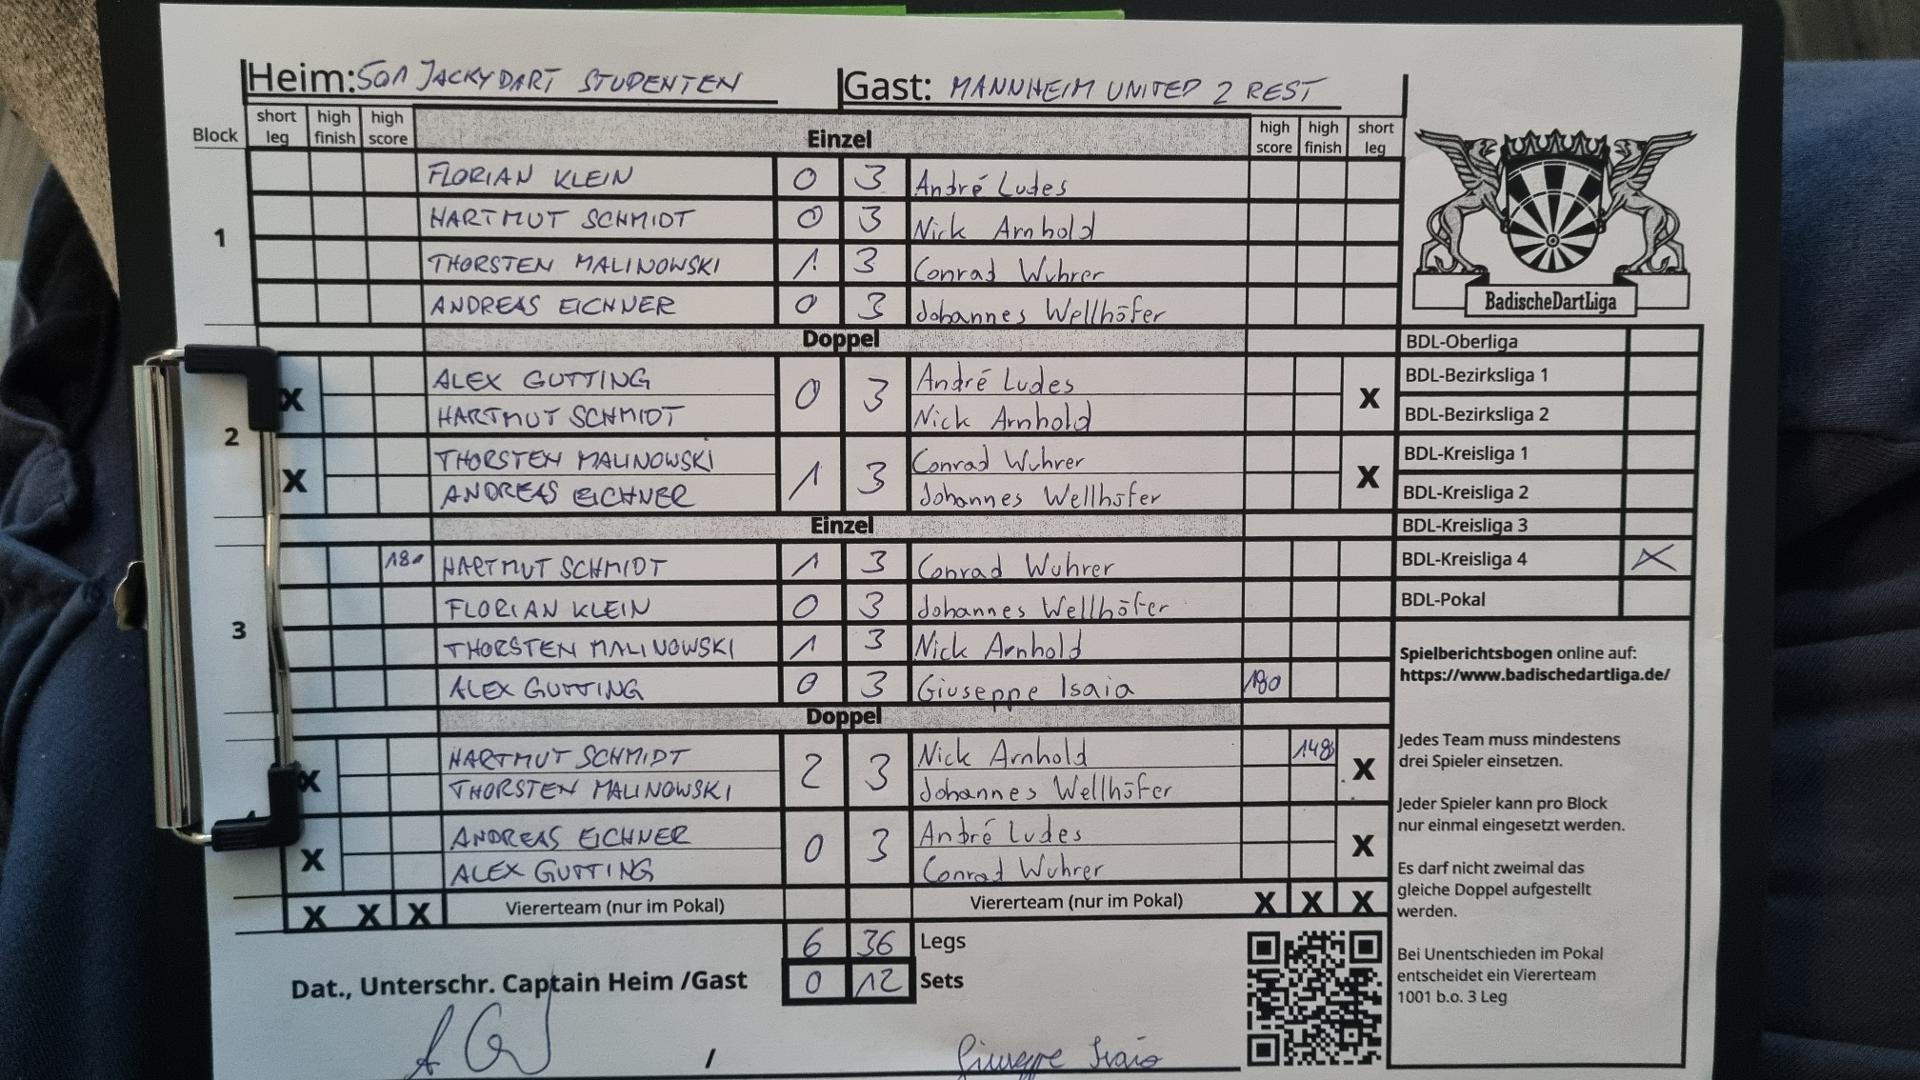 Heim: 501 JACKYDART STUDENTEN Gast: MANNHEIM UNITED 2 REST
Block short leg high finish high score Einzel high score high finish short leg
1
FLORIAN KLEIN 0 3 André Ludes
HARTMUT SCHMIDT 0 3 Nick Arnhold
THORSTEN MALINOWSKI 1 3 Conrad Wuhrer
ANDREAS EICHNER 0 3 Johannes Wellhöfer
Doppel
2
X ALEX GUTTING 0 3 André Ludes X
HARTMUT SCHMIDT Nick Arnhold
X THORSTEN MALINOWSKI 1 3 Conrad Wuhrer X
ANDREAS EICHNER Johannes Wellhöfer
Einzel
3
180 HARTMUT SCHMIDT 1 3 Conrad Wuhrer
FLORIAN KLEIN 0 3 Johannes Wellhöfer
THORSTEN MALINOWSKI 1 3 Nick Arnhold
ALEX GUTTING 0 3 Giuseppe Isaia 180
Doppel
X HARTMUT SCHMIDT 2 3 Nick Arnhold 148 X
THORSTEN MALINOWSKI Johannes Wellhöfer
X ANDREAS EICHNER 0 3 André Ludes X
ALEX GUTTING Conrad Wuhrer
X X X Viererteam (nur im Pokal) Viererteam (nur im Pokal) X X X
6 36 Legs
Dat., Unterschr. Captain Heim /Gast 0 12 Sets
/ Giuseppe Isaia
BadischeDartLiga
BDL-Oberliga
BDL-Bezirksliga 1
BDL-Bezirksliga 2
BDL-Kreisliga 1
BDL-Kreisliga 2
BDL-Kreisliga 3
BDL-Kreisliga 4 X
BDL-Pokal
Spielberichtsbogen online auf:
https://www.badischedartliga.de/
Jedes Team muss mindestens
drei Spieler einsetzen.
Jeder Spieler kann pro Block
nur einmal eingesetzt werden.
Es darf nicht zweimal das
gleiche Doppel aufgestellt
werden.
Bei Unentschieden im Pokal
entscheidet ein Viererteam
1001 b.o. 3 Leg